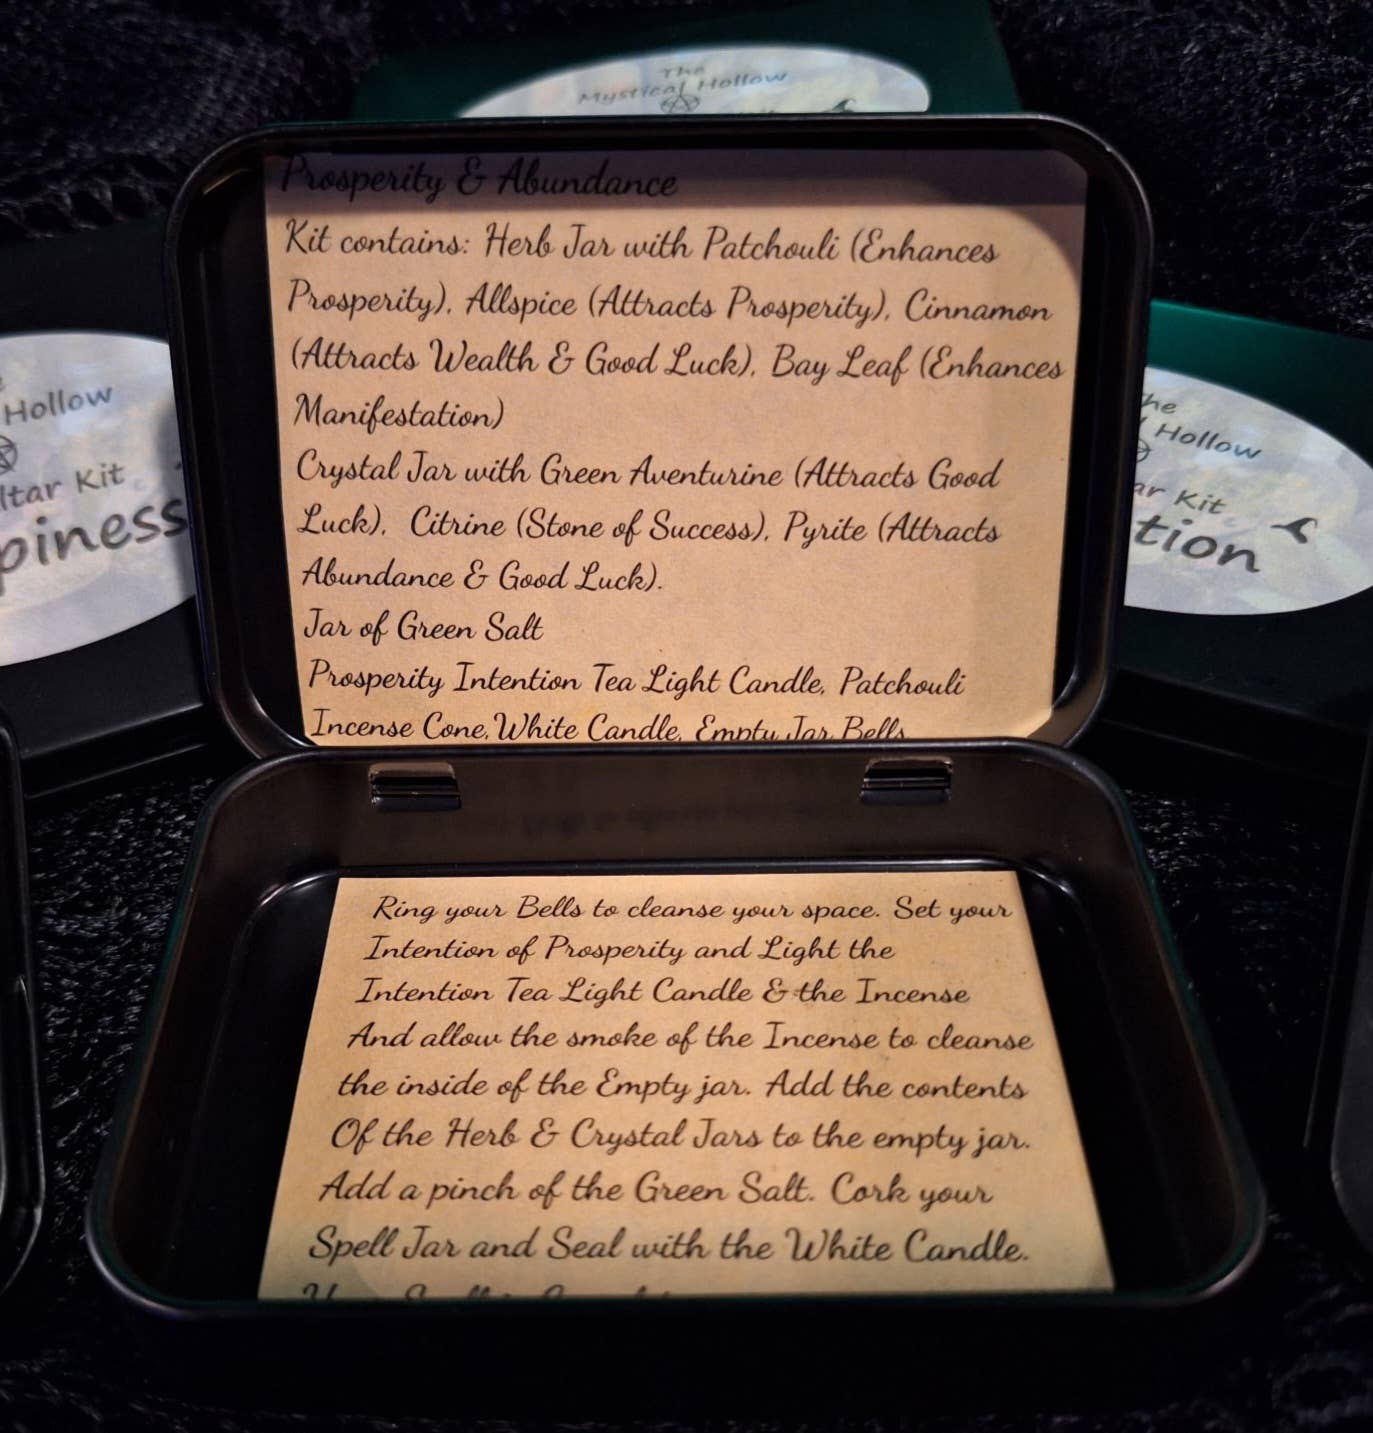 The
Mystical Hollow
Prosperity & Abundance
Kit contains: Herb Jar with Patchouli (Enhances
Prosperity), Allspice (Attracts Prosperity), Cinnamon
(Attracts Wealth & Good Luck), Bay Leaf (Enhances
Manifestation)
Crystal Jar with Green Aventurine (Attracts Good
Luck), Citrine (Stone of Success), Pyrite (Attracts
Abundance & Good Luck).
Jar of Green Salt
Prosperity Intention Tea Light Candle, Patchouli
Incense Cone, White Candle, Empty Jar Bells
Ring your Bells to cleanse your space. Set your
Intention of Prosperity and Light the
Intention Tea Light Candle & the Incense
And allow the smoke of the Incense to cleanse
the inside of the Empty jar. Add the contents
Of the Herb & Crystal Jars to the empty jar.
Add a pinch of the Green Salt. Cork your
Spell Jar and Seal with the White Candle.
Hollow
ltar Kit
piness
he
l Hollow
ar Kit
tion